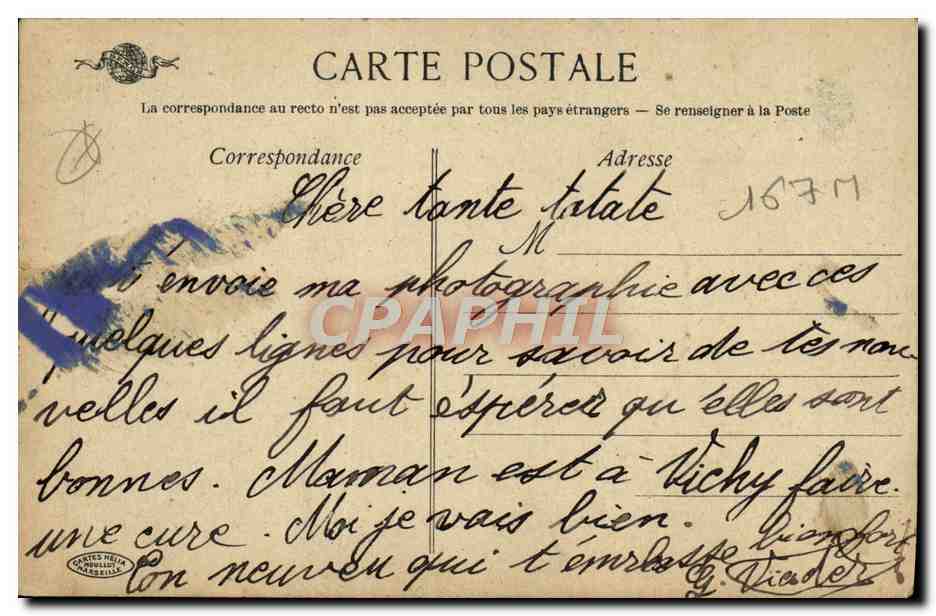 CARTE POSTALE
La correspondance au recto n'est pas acceptée par tous les pays étrangers — Se renseigner à la Poste
Correspondance
Adresse
167 M
Chère tante tatate
M
t'envoie ma photographie avec ces
quelques lignes pour savoir de tes nou-
velles il faut éspérer qu'elles sont
bonnes. Maman est à Vichy faire
une cure. Moi je vais bien.
Ton neuveu qui t'embrasse bien fort
G. Viader
CARTES HELIA
MOULLOT
MARSEILLE
CPAPHIL